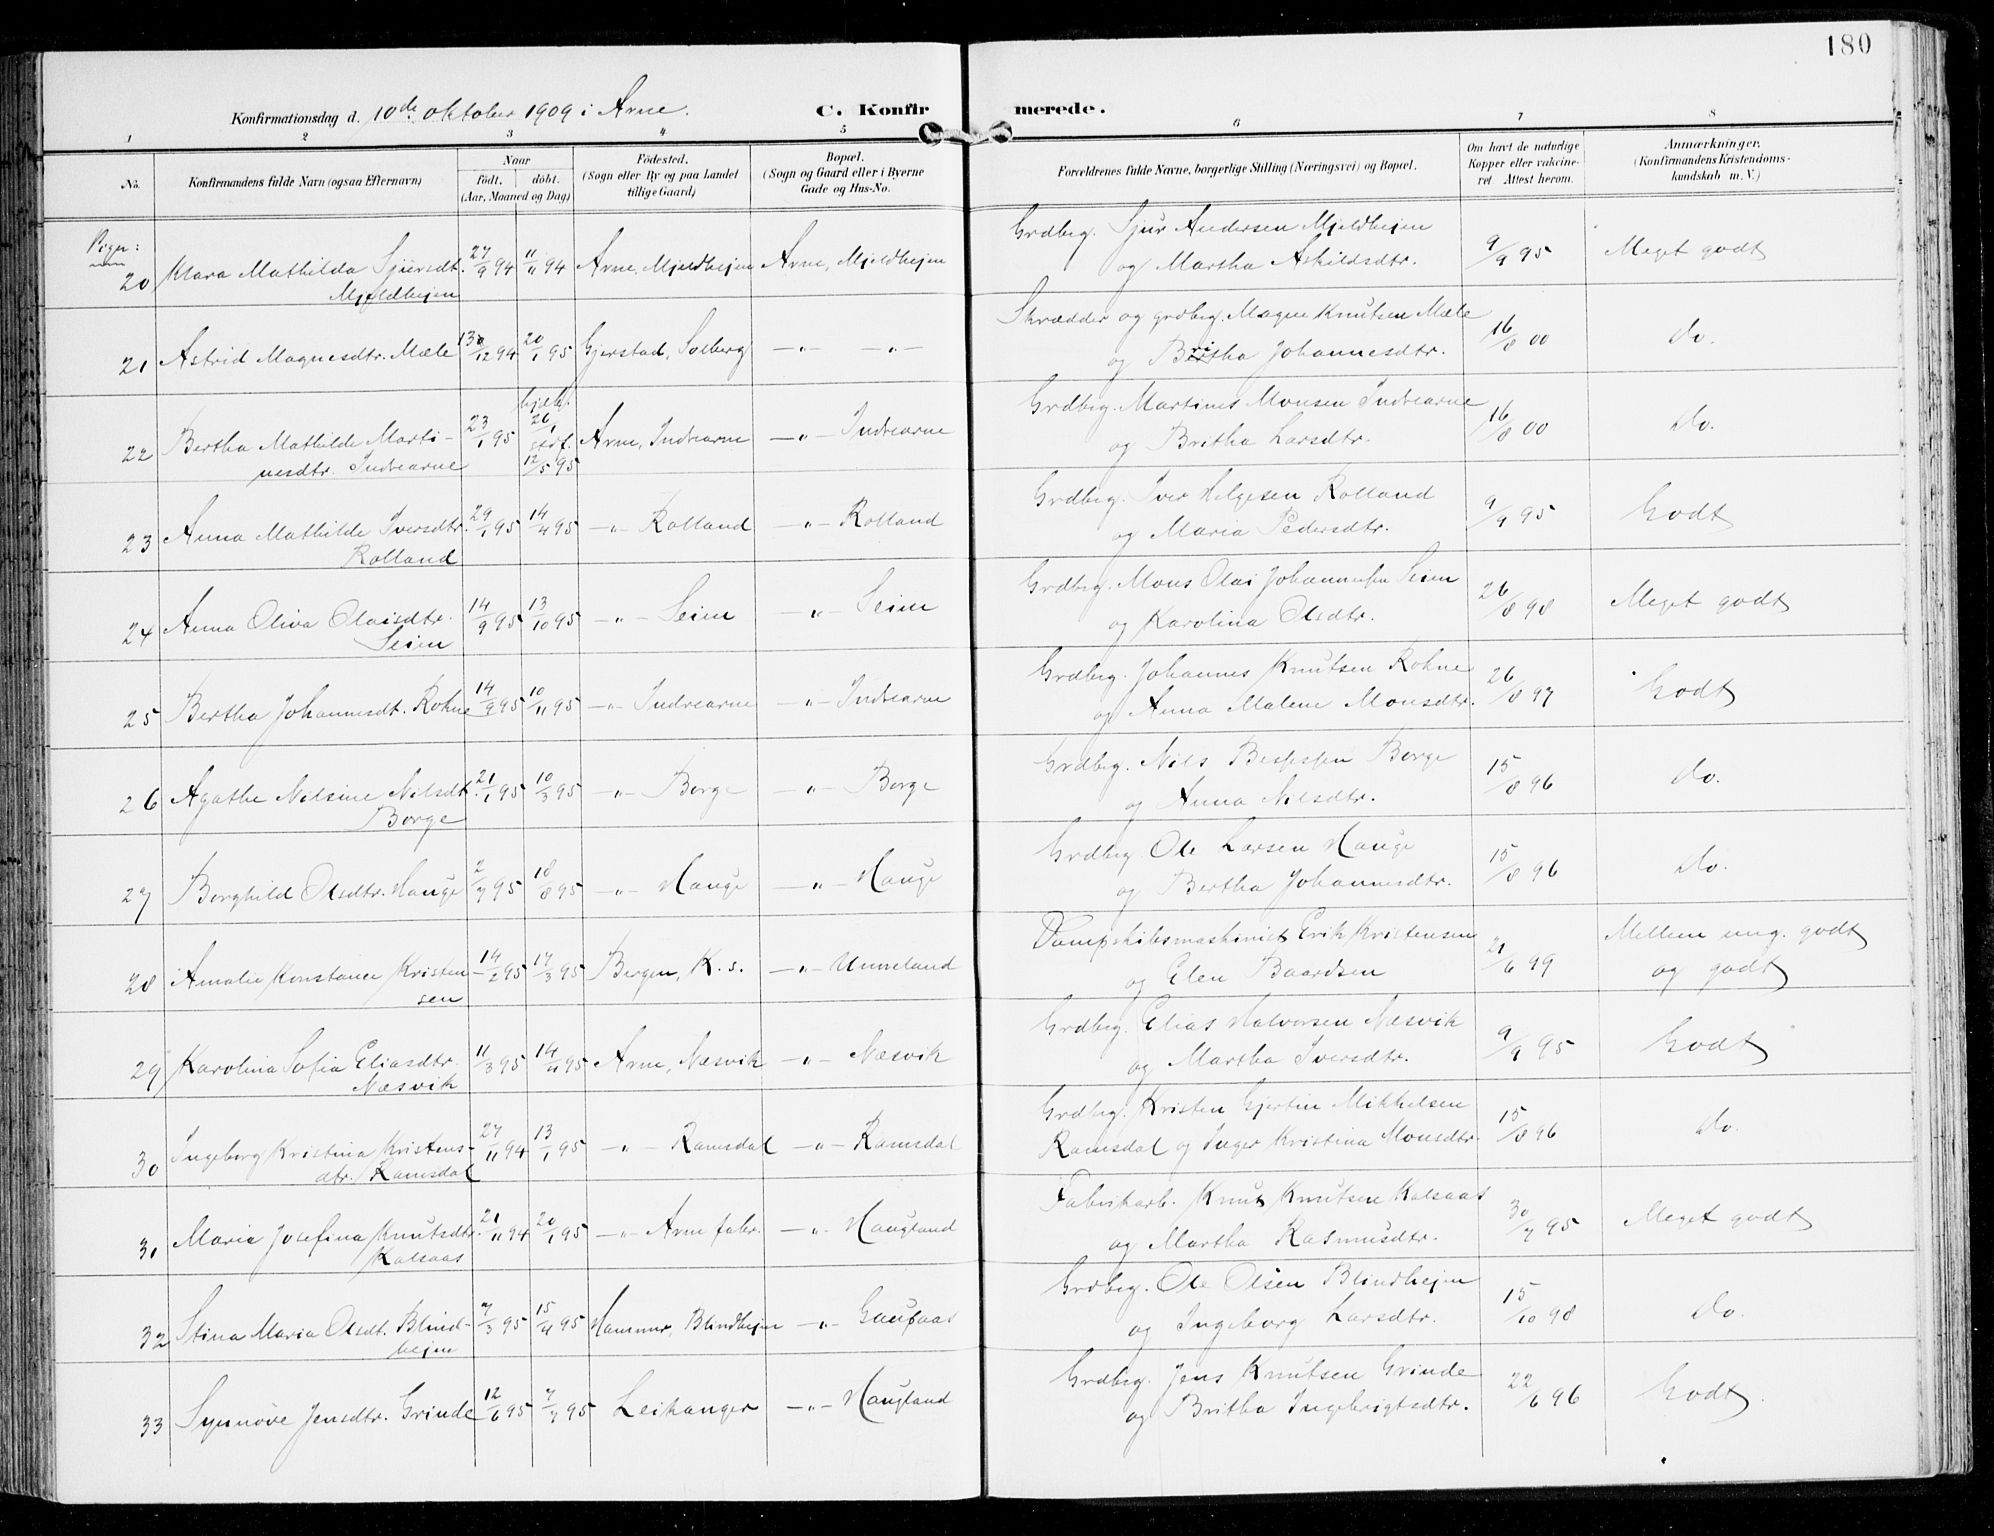 180
Konfirmationsdag d. 10de oktober 1909 i Arne.
C. Konfirmerede.
1 2 3 4 5 6 7 8
No. Konfirmandens fulde Navn (ogsaa Efternavn) Naar født, døbt. (Aar, Maaned og Dag) Fødested. (Sogn eller By og paa Landet tillige Gaard) Bopæl. (Sogn og Gaard eller i Byerne Gade og Hus-No. Forældrenes fulde Navne, borgerlige Stilling (Næringsvei) og Bopæl. Om havt de naturlige Kopper eller vakcineret. Attest herom. Anmærkninger. (Konfirmandens Kristendomskundskab m. V.)
20 Klara Mathilda Sjursdt. 27/9 94 11/11 94 Arne, Mjeldhejen Arne, Mjeldhejen Grdbrg. Sjur Andersen Mjeldhejen 9/9 95 Meget godt
Mjeldhejen og Martha Askildsdtr.
21 Astrid Magnesdtr. Mæle 30/12 94 20/1 95 Gjerstad, Solberg —„— —„— Skrædder og grdbrg. Magne Knutsen Mæle 16/8 00 do.
og Britha Johannesdtr.
22 Bertha Mathilde Marti- 23/1 95 hjdb. 26/1 Arne, Indrearne —„— Indrearne Grdbrg. Martines Monsen Indrearne 16/8 00 do.
nesdtr. Indrearne 12/5 95 og Britha Larsdtr.
23 Anna Mathilde Iversdtr. 29/1 95 14/4 95 —„— Rolland —„— Rolland Grdbrg. Iver Helgesen Rolland 9/9 95 Godt
Rolland og Maria Pedersdtr.
24 Anna Oliva Olaisdtr. 14/9 95 13/10 95 —„— Seim —„— Seim Grdbrg. Mons Olai Johannesen Seim 26/8 98 Meget godt
Seim og Karolina Olsdtr.
25 Bertha Johannesdt. Rohne 14/9 95 10/11 95 —„— Indrearne —„— Indrearne Grdbrg. Johannes Knutsen Rohne 26/8 97 Godt
og Anna Malene Monsdtr.
26 Agathe Nilsine Nilsdt. 21/1 95 10/3 95 —„— Borge —„— Borge Grdbrg. Nils Borge 15/8 96 do.
Borge og Anna Nilsdtr.
27 Borghild Olsdtr. Hauge 2/7 95 18/8 95 —„— Hauge —„— Hauge Grdbrg. Ole Larsen Hauge 15/8 96 do.
og Bertha Johannesdtr.
28 Amalie Konstance Kristen- 14/2 95 17/3 95 Bergen, K. s. —„— Unneland Dampskibsmaskinist Erik Kristensen 21/6 99 Mellem mg. godt
sen og Elen Baardsen og godt
29 Karolina Sofia Eliasdtr. 11/3 95 14/4 95 Arne, Næsvik —„— Næsvik Grdbrg. Elias Halvorsen Næsvik 9/9 95 Godt
Næsvik og Martha Iversdtr.
30 Ingeborg Kristina Kristens- 27/11 94 13/1 95 —„— Ramsdal —„— Ramsdal Grdbrg. Kristen Gjertin Mikkelsen 15/8 96 do.
dtr. Ramsdal Ramsdal og Inger Kristina Monsdtr.
31 Maria Josefina Knutsdtr. 21/11 94 20/1 95 —„— Arne fabr. —„— Haugland Fabrikarb. Knut Knutsen Kalsaas 30/7 95 Meget godt
Kalsaas og Martha Rasmusdtr.
32 Stina Maria Olsdt. Blind- 7/3 95 15/4 95 Hammer, Blindhejm —„— Gaupaas Grdbrg. Ole Olsen Blindhejm 15/10 98 do.
hejm og Ingeborg Larsdtr.
33 Synnøve Jensdtr. Grinde 12/6 95 7/7 95 Leikanger —„— Haugland Grdbrg. Jens Knutsen Grinde 22/6 96 Godt
og Britha Ingebrigtsdtr.